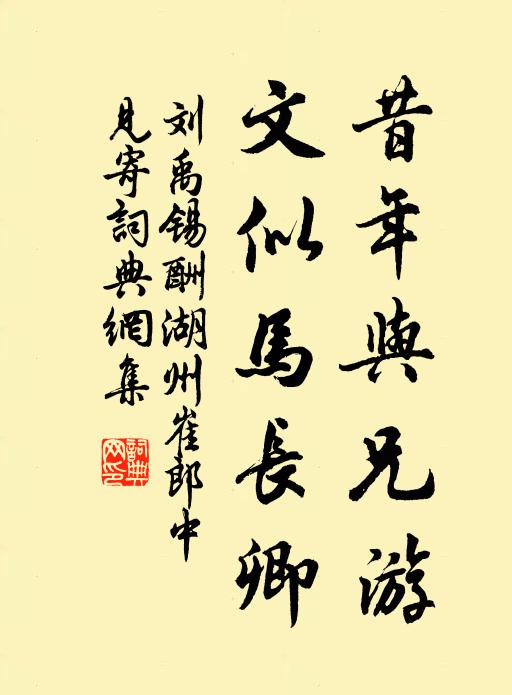 昔年與兄游
文似馬長卿
刘禹锡酬湖州崔郎中
見寄詞典網集
詞典
网印